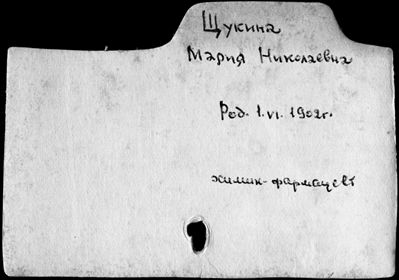 Щукина
Мария Николаевна
Род. 1.VI. 1902г.
химик-фармацевт